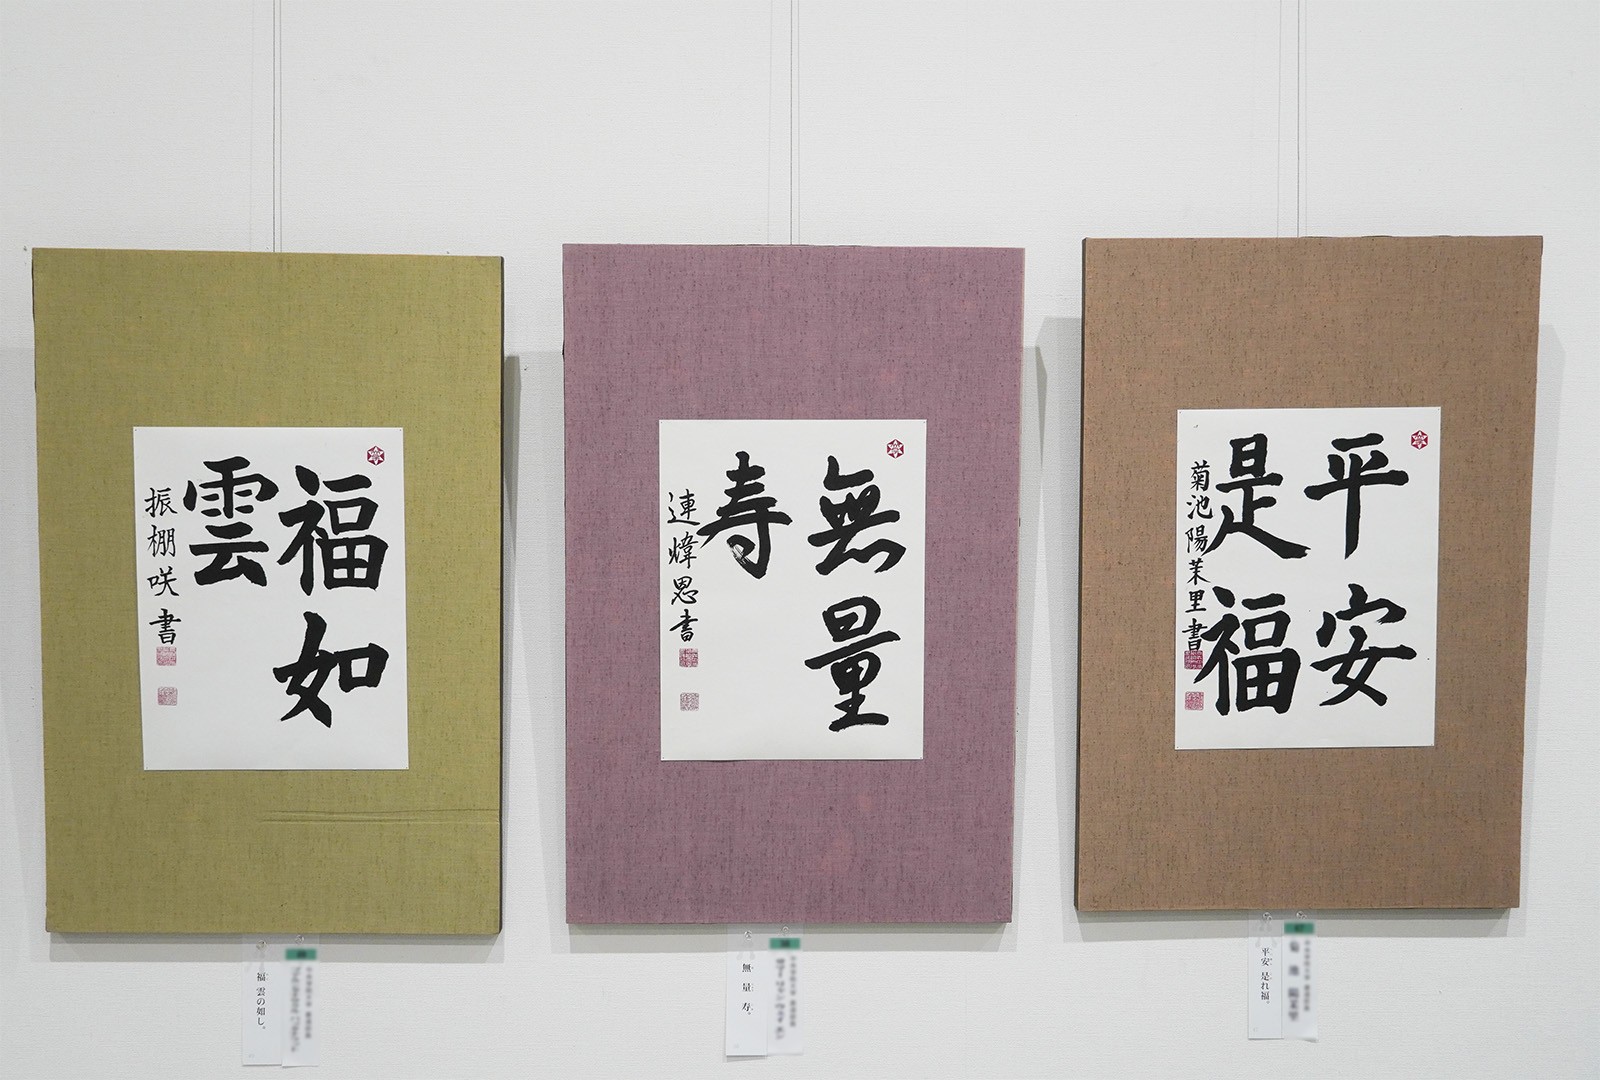 福如
雲
振棚咲書
福 雲の如し。
無量
寿
連煒恩書
無量寿。
平安
是福
菊池陽茉里書
平安 是れ福。